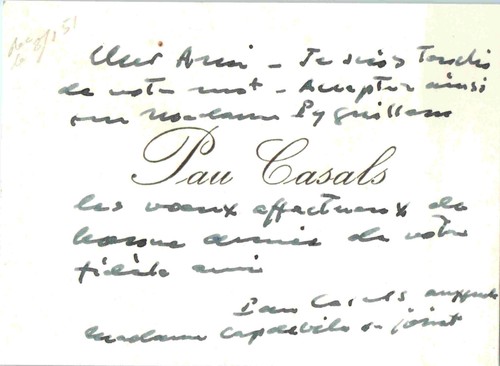 Cher Ami - Je suis touché
de votre mot - Acceptez ainsi
que Madame Pyguillem
Pau Casals
les voeux affectueux de
bonne année de votre
fidèle ami
Pau Casals
Madame Capdevila se joint